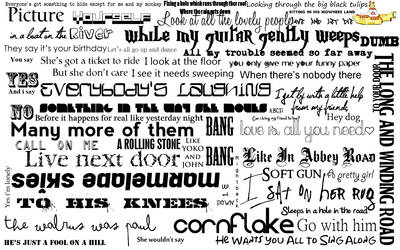 Everyone's got something to hide except for me and my monkey
Fixing a hole which rens through ther roof
Where the rain gets down
Looking through the big black tulips
Picture Yourself
Look at all the lovely people
in a boat on the River
while my guitar gently weeps
DUMB
They say it's your birthday
Let's all go up and dance
All my trouble seemed so far away
YES
She's got a ticket to ride & look at the floor
you only give me your funny paper
And i say
But she don't care I see it needs sweeping
When there's nobody there
EVERYBODY'S LAUGHING
I get by with a little help
from my friends
NO
SOMETHING IN THE WAY SHE MOVES
ABCD
Before it happens for real like yesterday night
Hey dog
Many more of them
BANG
love is all you need
CALL ON ME
A ROLLING STONE
LIKE
YOKO
AND
JOHN
Live next door
BANG
Like In Abbey Road
THE LONG AND WINDING ROAD
marmelade skies
SOFT GUN
A pretty girl
I SAT ON HER RUG
TO HIS KNEES
Yes i'm lonely
Sleeps in a hole in the road
the walrus was paul
cornflake
Go with him
HE'S JUST A FOOL ON A HILL
She wouldn't say
HE WANTS YOU ALL TO SING ALONG